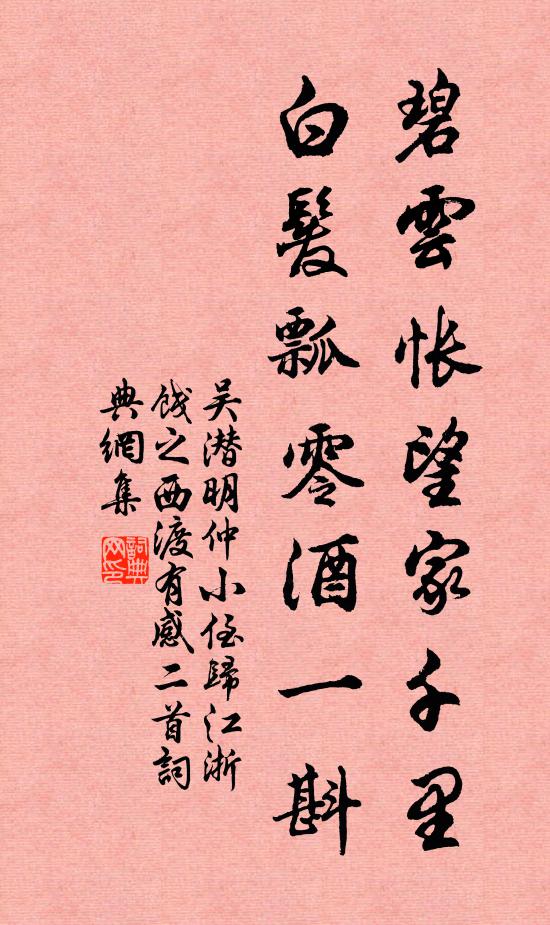 碧雲悵望家千里
白髮瓢零酒一斟
吴潛明仲小侄歸江浙
餞之西渡有感二首詞
典網集
詞典
网印